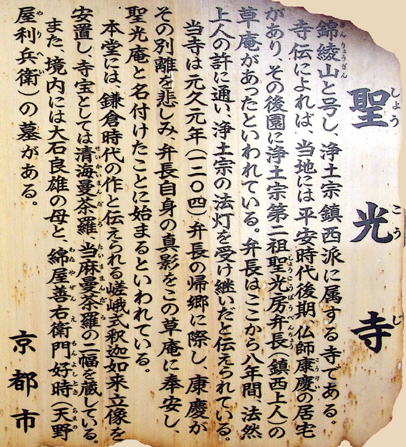 聖光寺
錦綾山と号し、浄土宗鎮西派に属する寺である。
寺伝によれば、当地には平安時代後期、仏師康慶の居宅
があり、その後園に浄土宗第二祖聖光房弁長(鎮西上人)の
草庵があったといわれている。弁長はここから八年間、法然
上人の許に通い、浄土宗の法灯を受け継いだと伝えられている。
当寺は元久元年(一二〇四)弁長の帰郷に際し、康慶が
その別離を悲しみ、弁長自身の真影をこの草庵に奉安し、
聖光庵と名付けたことに始まるといわれている。
本堂には、鎌倉時代の作と伝えられる嵯峨式釈迦如来立像を
安置し、寺宝としては清海曼荼羅、当麻曼荼羅の二幅を蔵している。
また、境内には大石良雄の母と、綿屋善右衛門好時(天野
屋利兵衛)の墓がある。
京都市